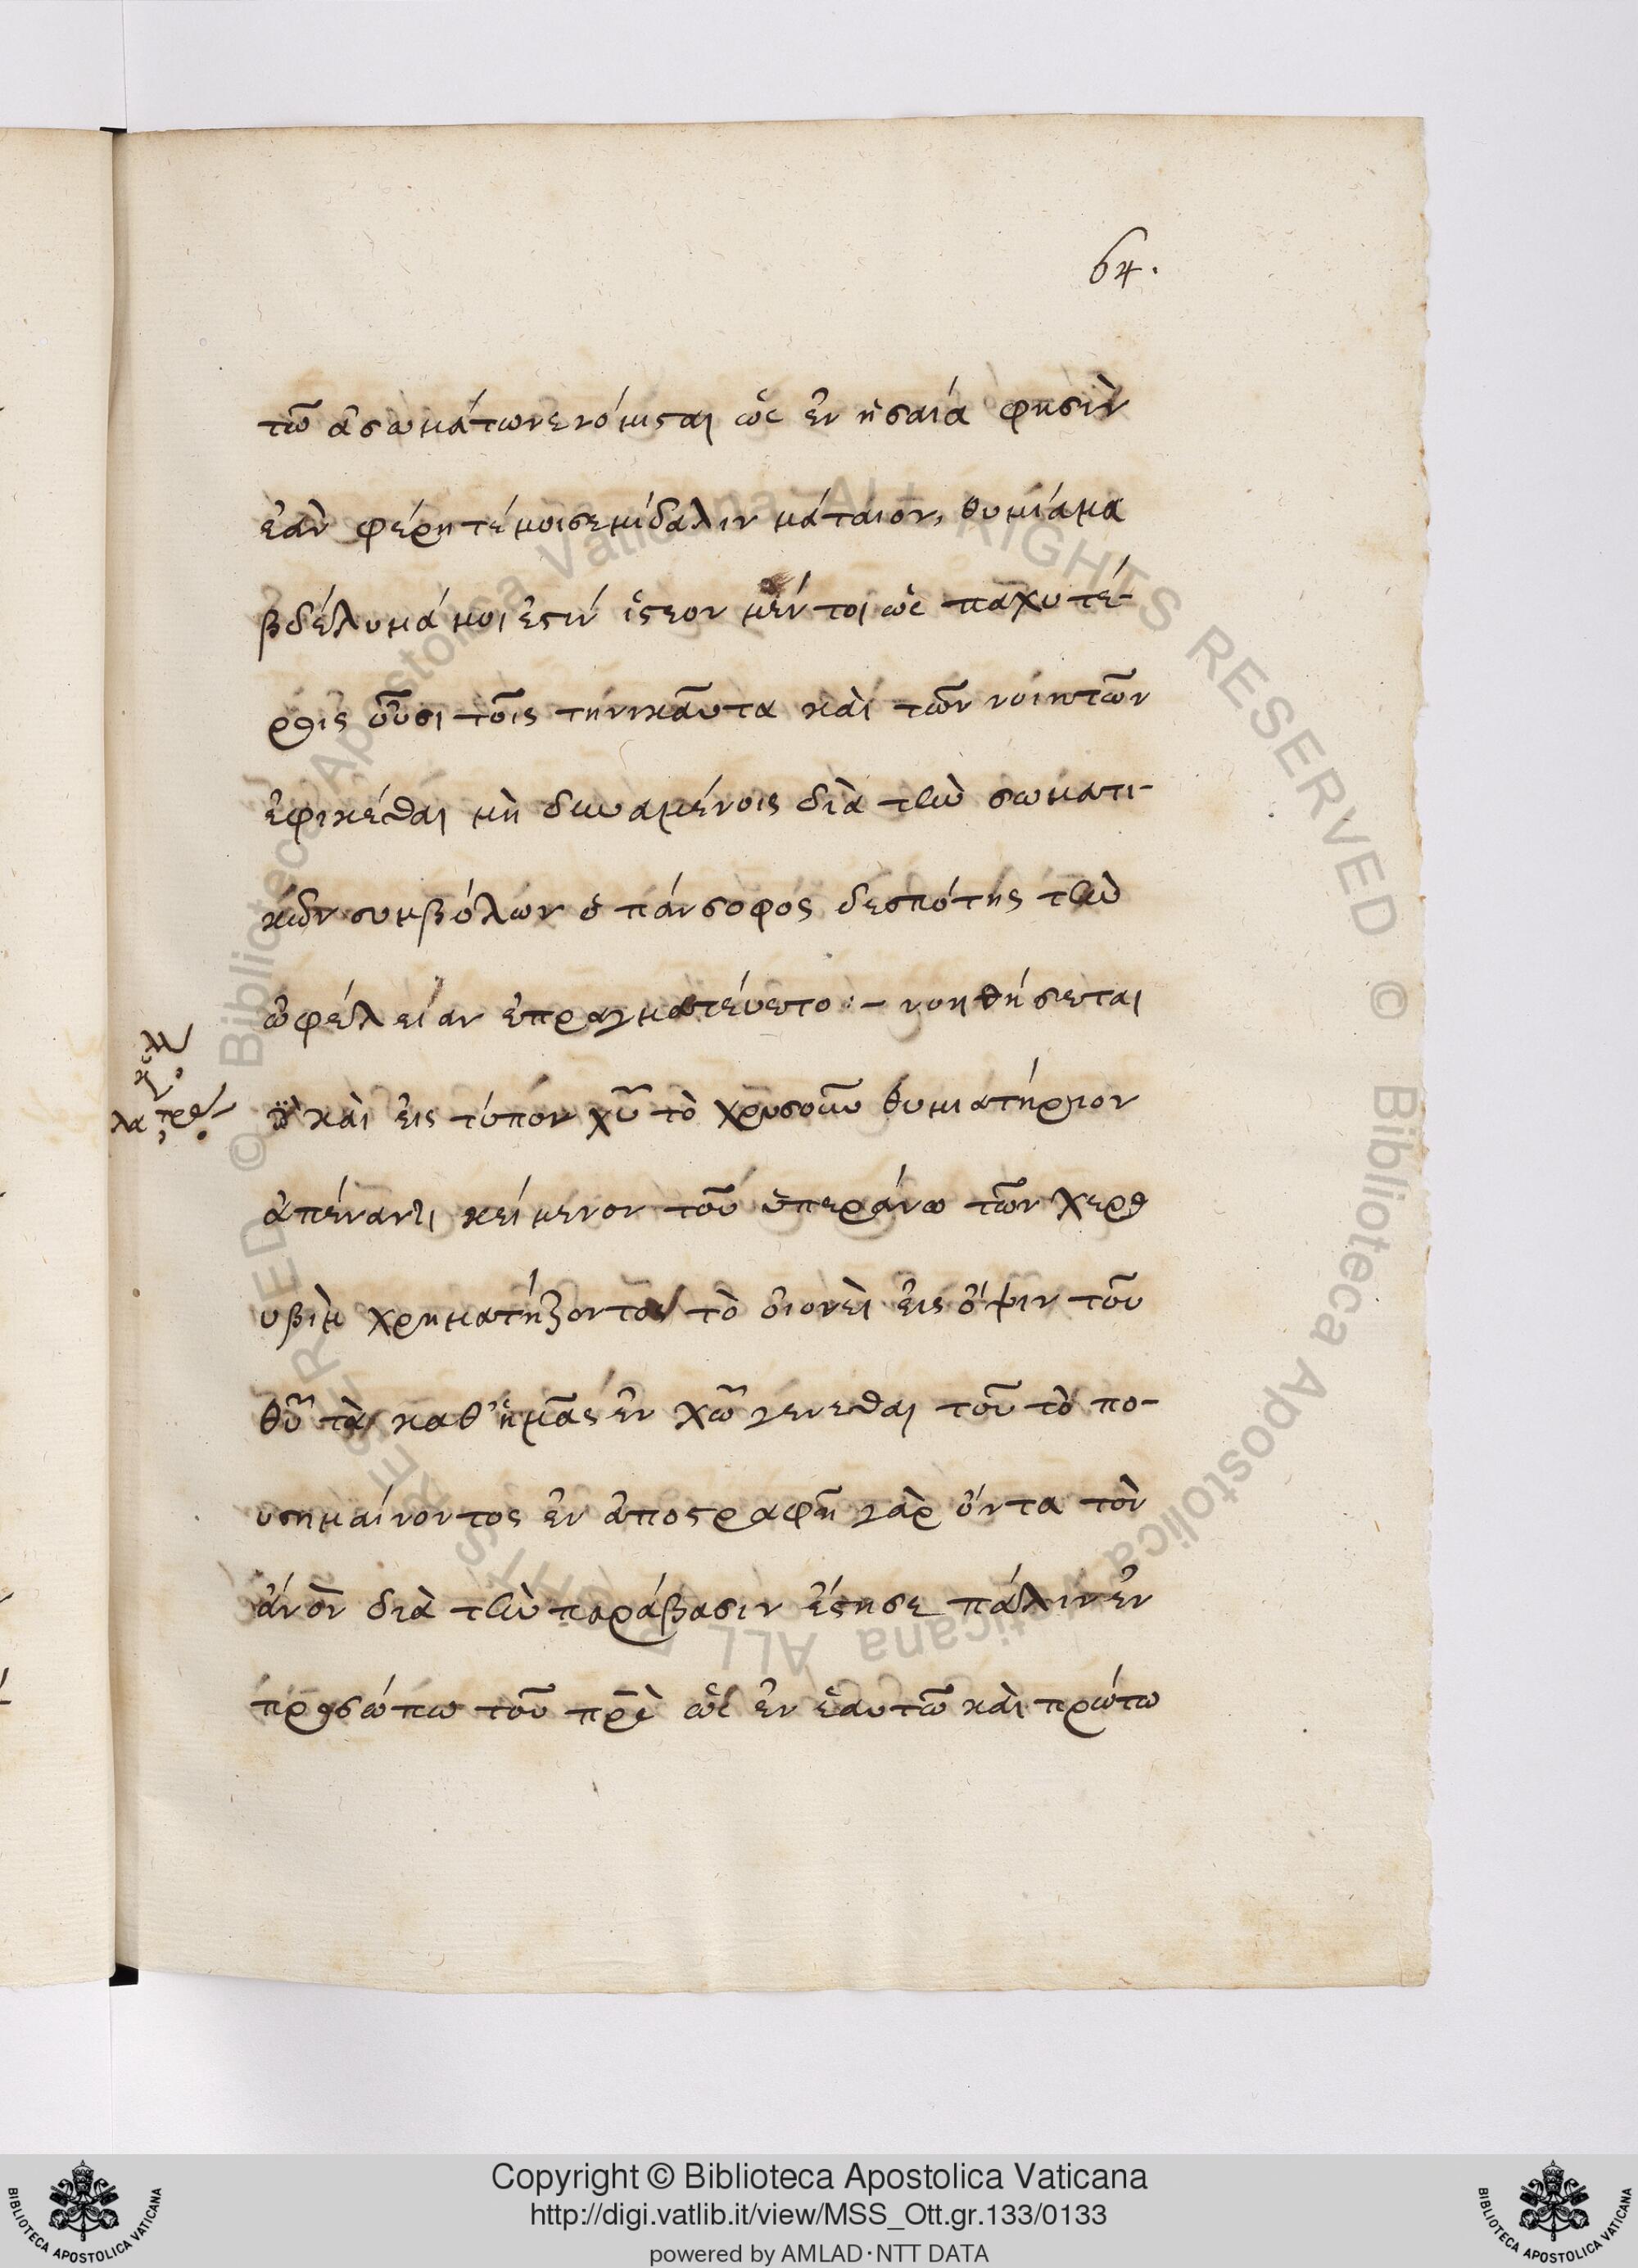 64.
τῶ ἀσωμάτων ενόμισται ὡς ἐν ἠσαία φησὶν
ἐὰν φέρητέ μοι σεμίδαλιν μάταιον, θυμίαμα
βδέλυμά μοι ἐστίν ἰστεον μέν τοι ὡς παχυτέ-
ροις οὖσι τοῖς τηνικαῦτα καὶ τῶν νοητῶν
ἐφικέσθαι μὴ δυναμένοις διὰ τὴν σωματι-
κῶν συμβόλων ὁ πάνσοφος δεσπότης τὴν
ὠφέλείαν ἐπραγματέυετο :- νοηθήσεται
καὶ εἰς τύπον χῦ τὸ χρυσοῦν θυμιατήριον
ἀπέναντι κείμενον τοῦ ὑπεράνω τῶν χερο
υβὶμ χρηματήζοντος τὸ οἱονεὶ εἰς ὄψιν τοῦ
θῦ τὰ καθ' ἡμᾶς ἐν χῶ γενεσθαι τοῦ τὸ πο-
υσημαίνοντος ἐν ἀποστραφῆ γὰρ ὄντα τὸν
ἄνον διὰ τὴν παράβασιν ἔστησε πάλιν ἐν
προσώπω τοῦ πρς ὡς ἐν ἑαυτῶ καὶ πρώτω
Copyright © Biblioteca Apostolica Vaticana
http://digi.vatlib.it/view/MSS_Ott.gr.133/0133
powered by AMLAD·NTT DATA
BIBLIOTECA APOSTOLICA VATICANA
BIBLIOTECA APOSTOLICA VATICANA
© Biblioteca Apostolica Vaticana ALL RIGHTS RESERVED © Biblioteca Apostolica Vaticana ALL RIGHTS RESERVED